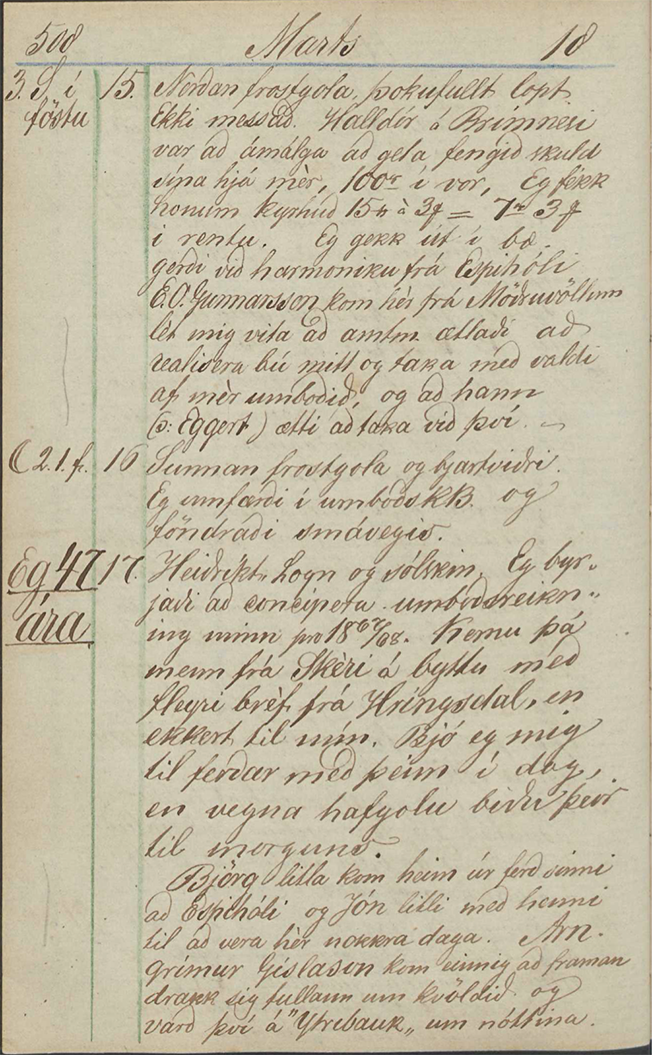 508 Marts 18
3. S. í föstu 15. Norðan frostgola, þokufullt lopt.
Ekki messað. Halldór á Brimnesi
var að ámálga að geta fengið skuld
sína hjá mèr, 100 rd í vor, Eg fékk
honum kyrhúð 15 à 3 = 7 3
i rentu. Eg gekk út í bæ.
gerði við harmoniku frá Espihóli
E.O. Gunnarsson kom hér frá Möðruvöllum
lèt mig vita að amtm. ætlaði að
realisera bú mitt og taka með valdi
af mèr umboðið, og að hann
(ɔ: Eggert) ætti að taka við því.
2. í. f. 16 Sunnan frostgola og bjartviðri.
Eg umfærði í umboðs KB. og
föndraði smávegis.
Eg 47 ára 17. Heiðríkt, Logn og sólskin, Eg byr-
jaði að concipera umboðsreikn-
ing minn pro 1867/68. Komu þá
menn frá Skèri á byttu með
fleyri brèf frá Hringsdal, en
ekkert til mín. Bjó eg mig
til ferðar með þeim í dag,
en vegna hafgolu biðu þeir
til morguns.
Björg litla kom heim úr ferð sinni
að Espihóli og Jón litli með henni
til að vera hér nokkra daga. Arn-
grímur Gíslason kom einnig að framan
drakk sig fullann um kvöldið og
varð því á "Ytribauk" um nóttina.